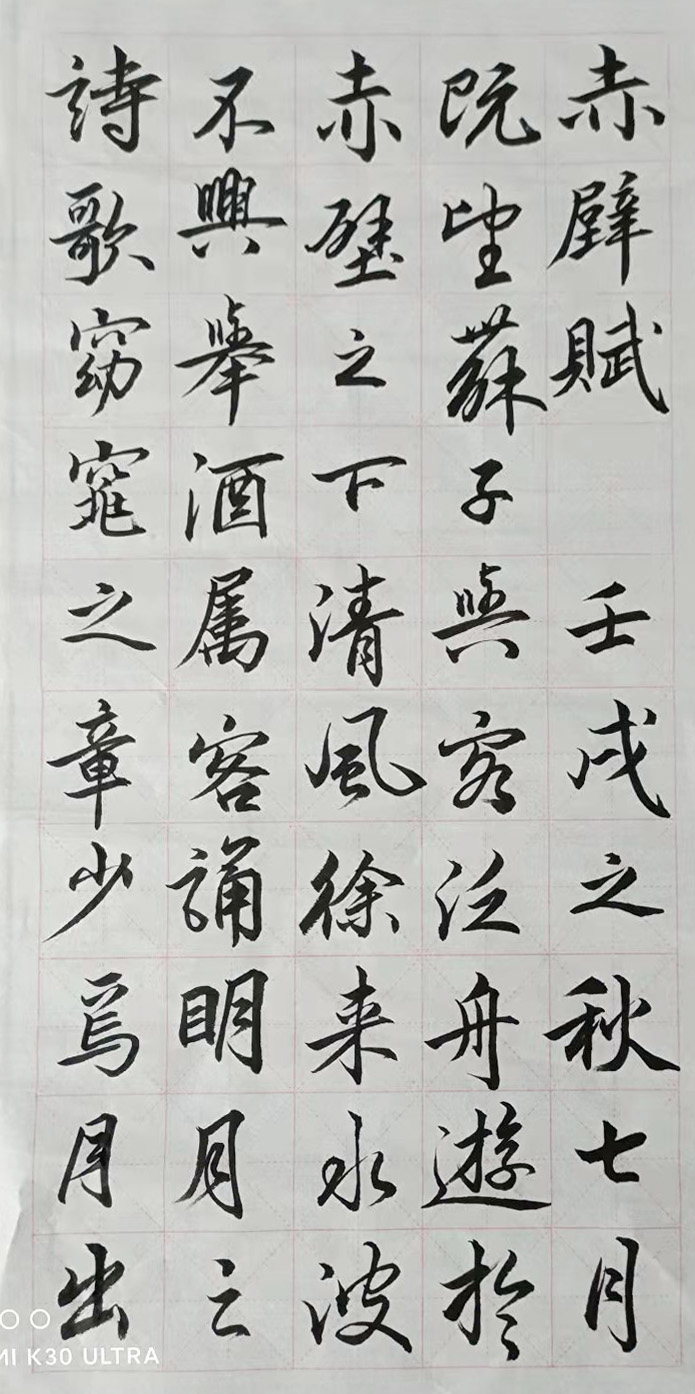 赤壁賦 壬戌之秋七月
既望蘇子與客泛舟遊於
赤壁之下清風徐来水波
不興舉酒属客誦明月之
詩歌窈窕之章少焉月出
MI K30 ULTRA